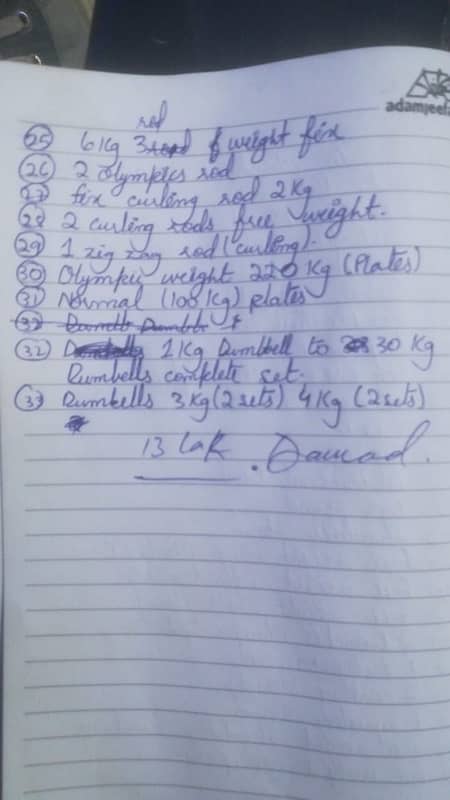 adamjee
rod
25 6 Kg 3 weight fix
26 2 Olympics rod
27 fix curling rod 2 Kg
28 2 curling rods free weight.
29 1 zig zag rod (curling).
30 Olympic weight 220 Kg (Plates)
31 Normal (100 Kg) plates
32 1 Kg Dumbbell to 30 Kg
Dumbells complete set.
33 Dumbells 3 Kg (2 sets) 4 Kg (2 sets)
13 Lak .